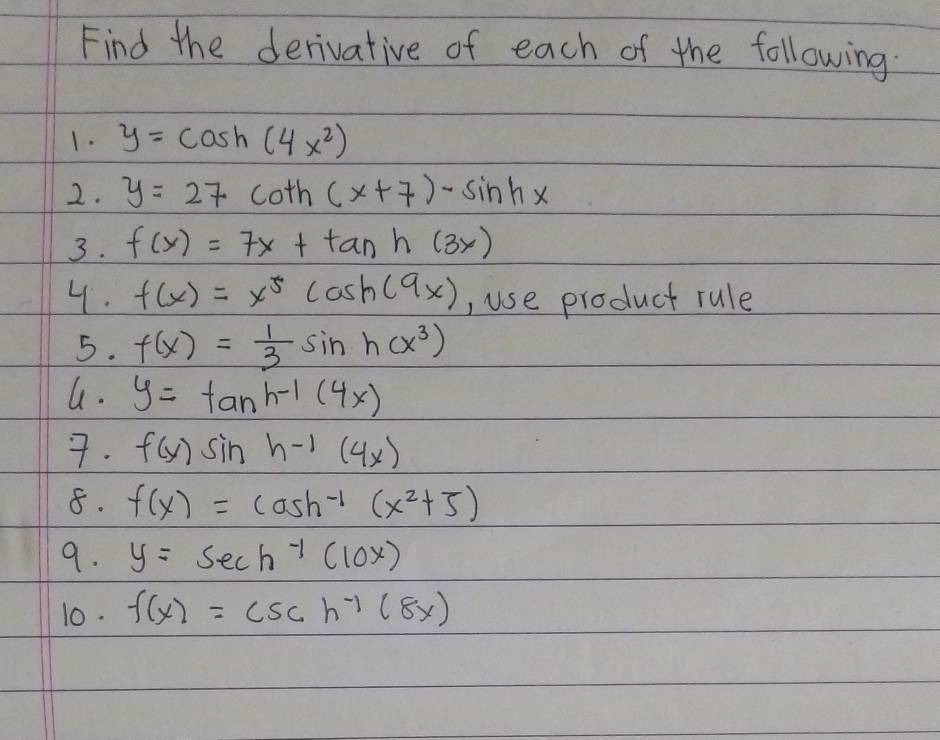 Find the derivative of each of the following.
1. y = cosh (4x²)
2. y = 27 coth (x+7) - sinh x
3. f(x) = 7x + tan h (3x)
4. f(x) = x⁵ cosh(9x), use product rule
5. f(x) = 1/3 sin h (x³)
6. y = tan h-1 (4x)
7. f(x) sin h-1 (4x)
8. f(x) = cosh⁻¹ (x²+5)
9. y = sec h⁻¹ (10x)
10. f(x) = csc h⁻¹ (8x)